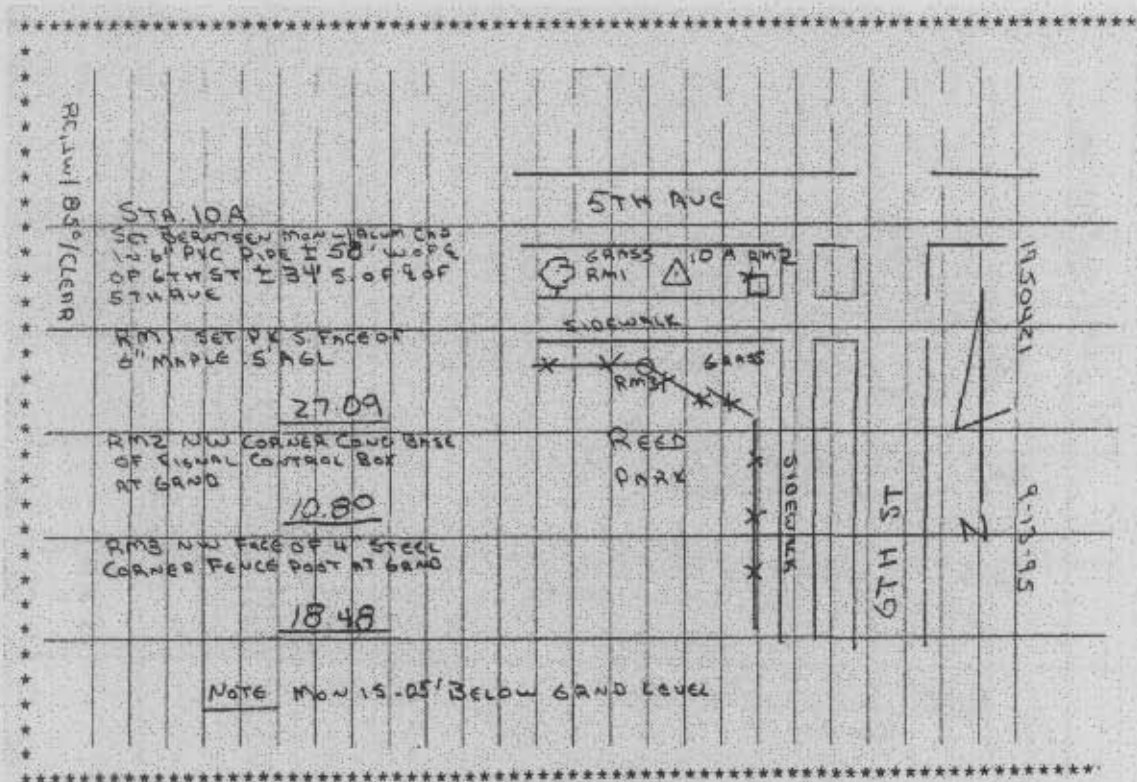 RC, JW / 85°/CLEAR
STA. 10A
SET BERNTSEN MON W/ALUM CAP
IN 6" PVC PIPE ± 58' W OF ℄
OF 6TH ST ± 34' S. OF ℄ OF
5TH AVE
RM1 SET PK S FACE OF
6" MAPLE .5' AGL
27.09
RM2 NW CORNER CONC BASE
OF SIGNAL CONTROL BOX
AT GRND
10.80
RM3 NW FACE OF 4" STEEL
CORNER FENCE POST AT GRND
18.48
NOTE MON IS .05' BELOW GRND LEVEL
5TH AVE
GRASS
RM1
10A
RM2
SIDEWALK
GRASS
RM3
REED
PARK
SIDEWALK
6TH ST
N
1950421
9-13-95